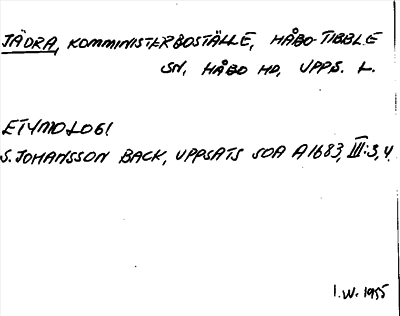 JÄDRA, KOMMINISTERBOSTÄLLE, HÅBO-TIBBLE
SN, HÅBO HD, UPPS. L.
ETYMOLOGI
S. JOHANSSON BACK, UPPSATS SOA A1683, III:3, 4
I.W. 1955